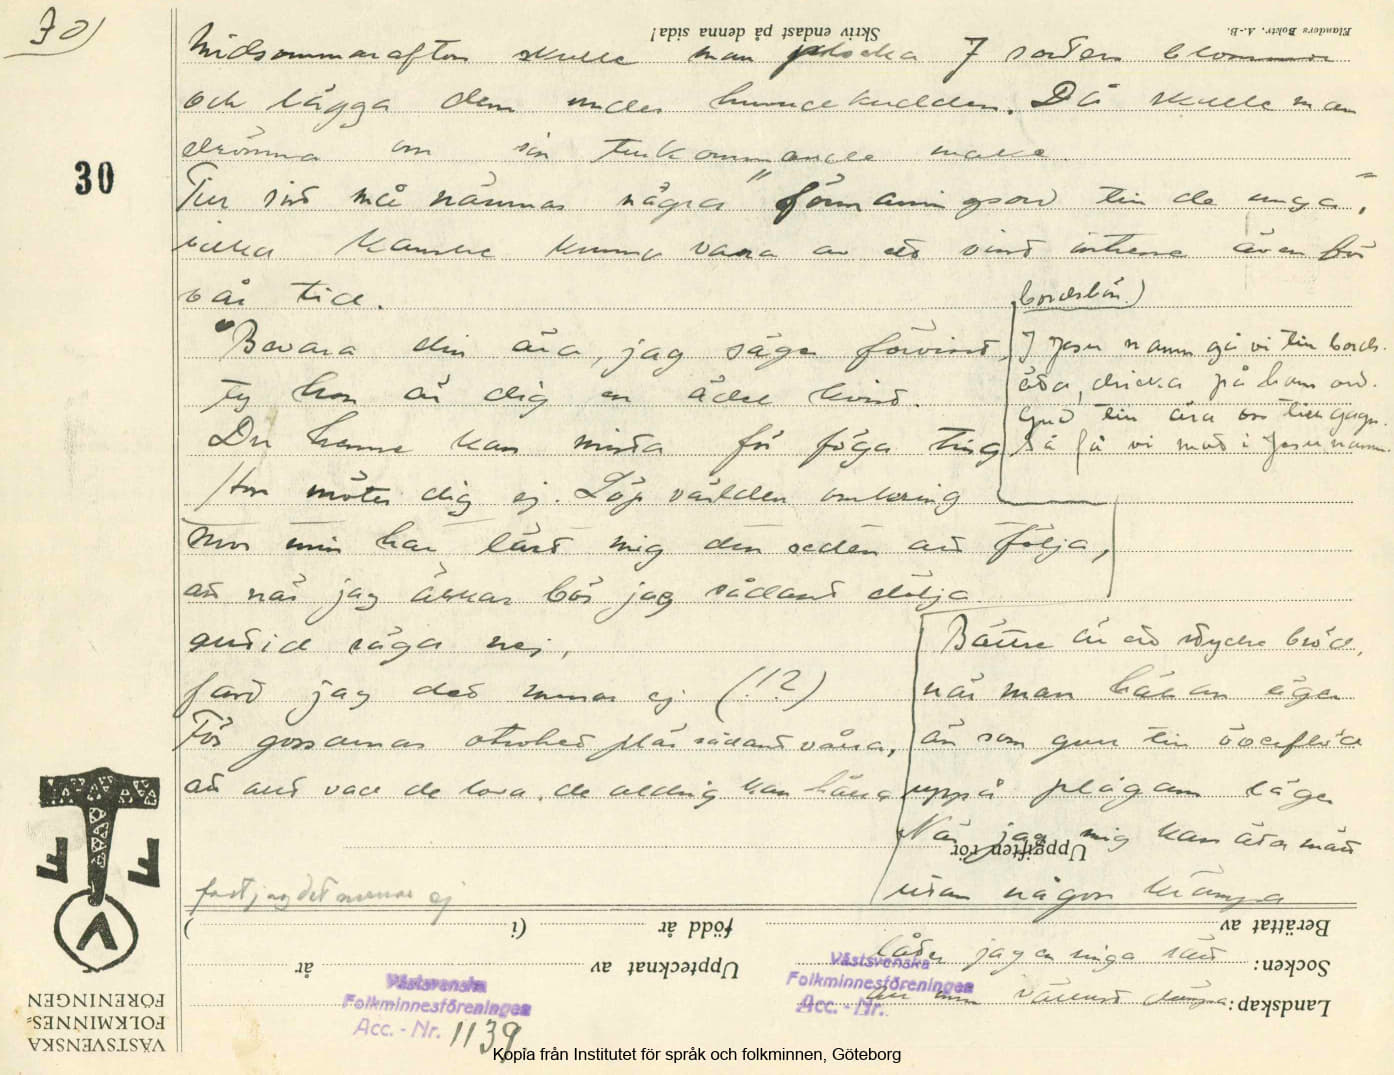 30
Midsommarafton skulle man plocka 7 sorters blommor
och lägga dem under huvudkudden. Då skulle man
drömma om sin tillkommande make.
Till sist må nämnas några "förmaningsord till de unga",
vilka kanske kunna vara av ett visst intresse även för
vår tid.
"Bevara din ära, jag säger förvisst,
ty hon är dig en ädel kvist.
Du henne kan mista för föga ting
Hon möter dig ej. Löp världen omkring
Mor min har lärt mig den seden att följa,
att när jag älskar bör jag sådant dölja
alltid säga nej,
fast jag det menar ej (!!?)
För gossarnas otrohet plär sådant vålla,
att allt vad de lova, de aldrig kan hålla
fast jag det menar ej
bordsbön.)
I Jesu namn gå vi till bords.
äta, dricka på hans ord.
Gud till ära oss till gagn.
Så få vi mat i Jesu namn.
Bättre är ett stycke bröd,
när man hälsan äger
än som gull till överflöd
uppå plågans läger
När jag mig kan äta mätt
utan någon krämpa
låter jag en ringa rätt
Skriv endast på denna sida!
Elanders Boktr. A.-B.
Uppgiften rör
Berättat av
född år
(i
)
Socken:
Upptecknat av
år
Landskap:
Västsvenska
Folkminnesföreningen
Acc. - Nr. 1139
Västsvenska
Folkminnesföreningen
Acc. - Nr.
VÄSTSVENSKA
FOLKMINNES-
FÖRENINGEN
Kopia från Institutet för språk och folkminnen, Göteborg